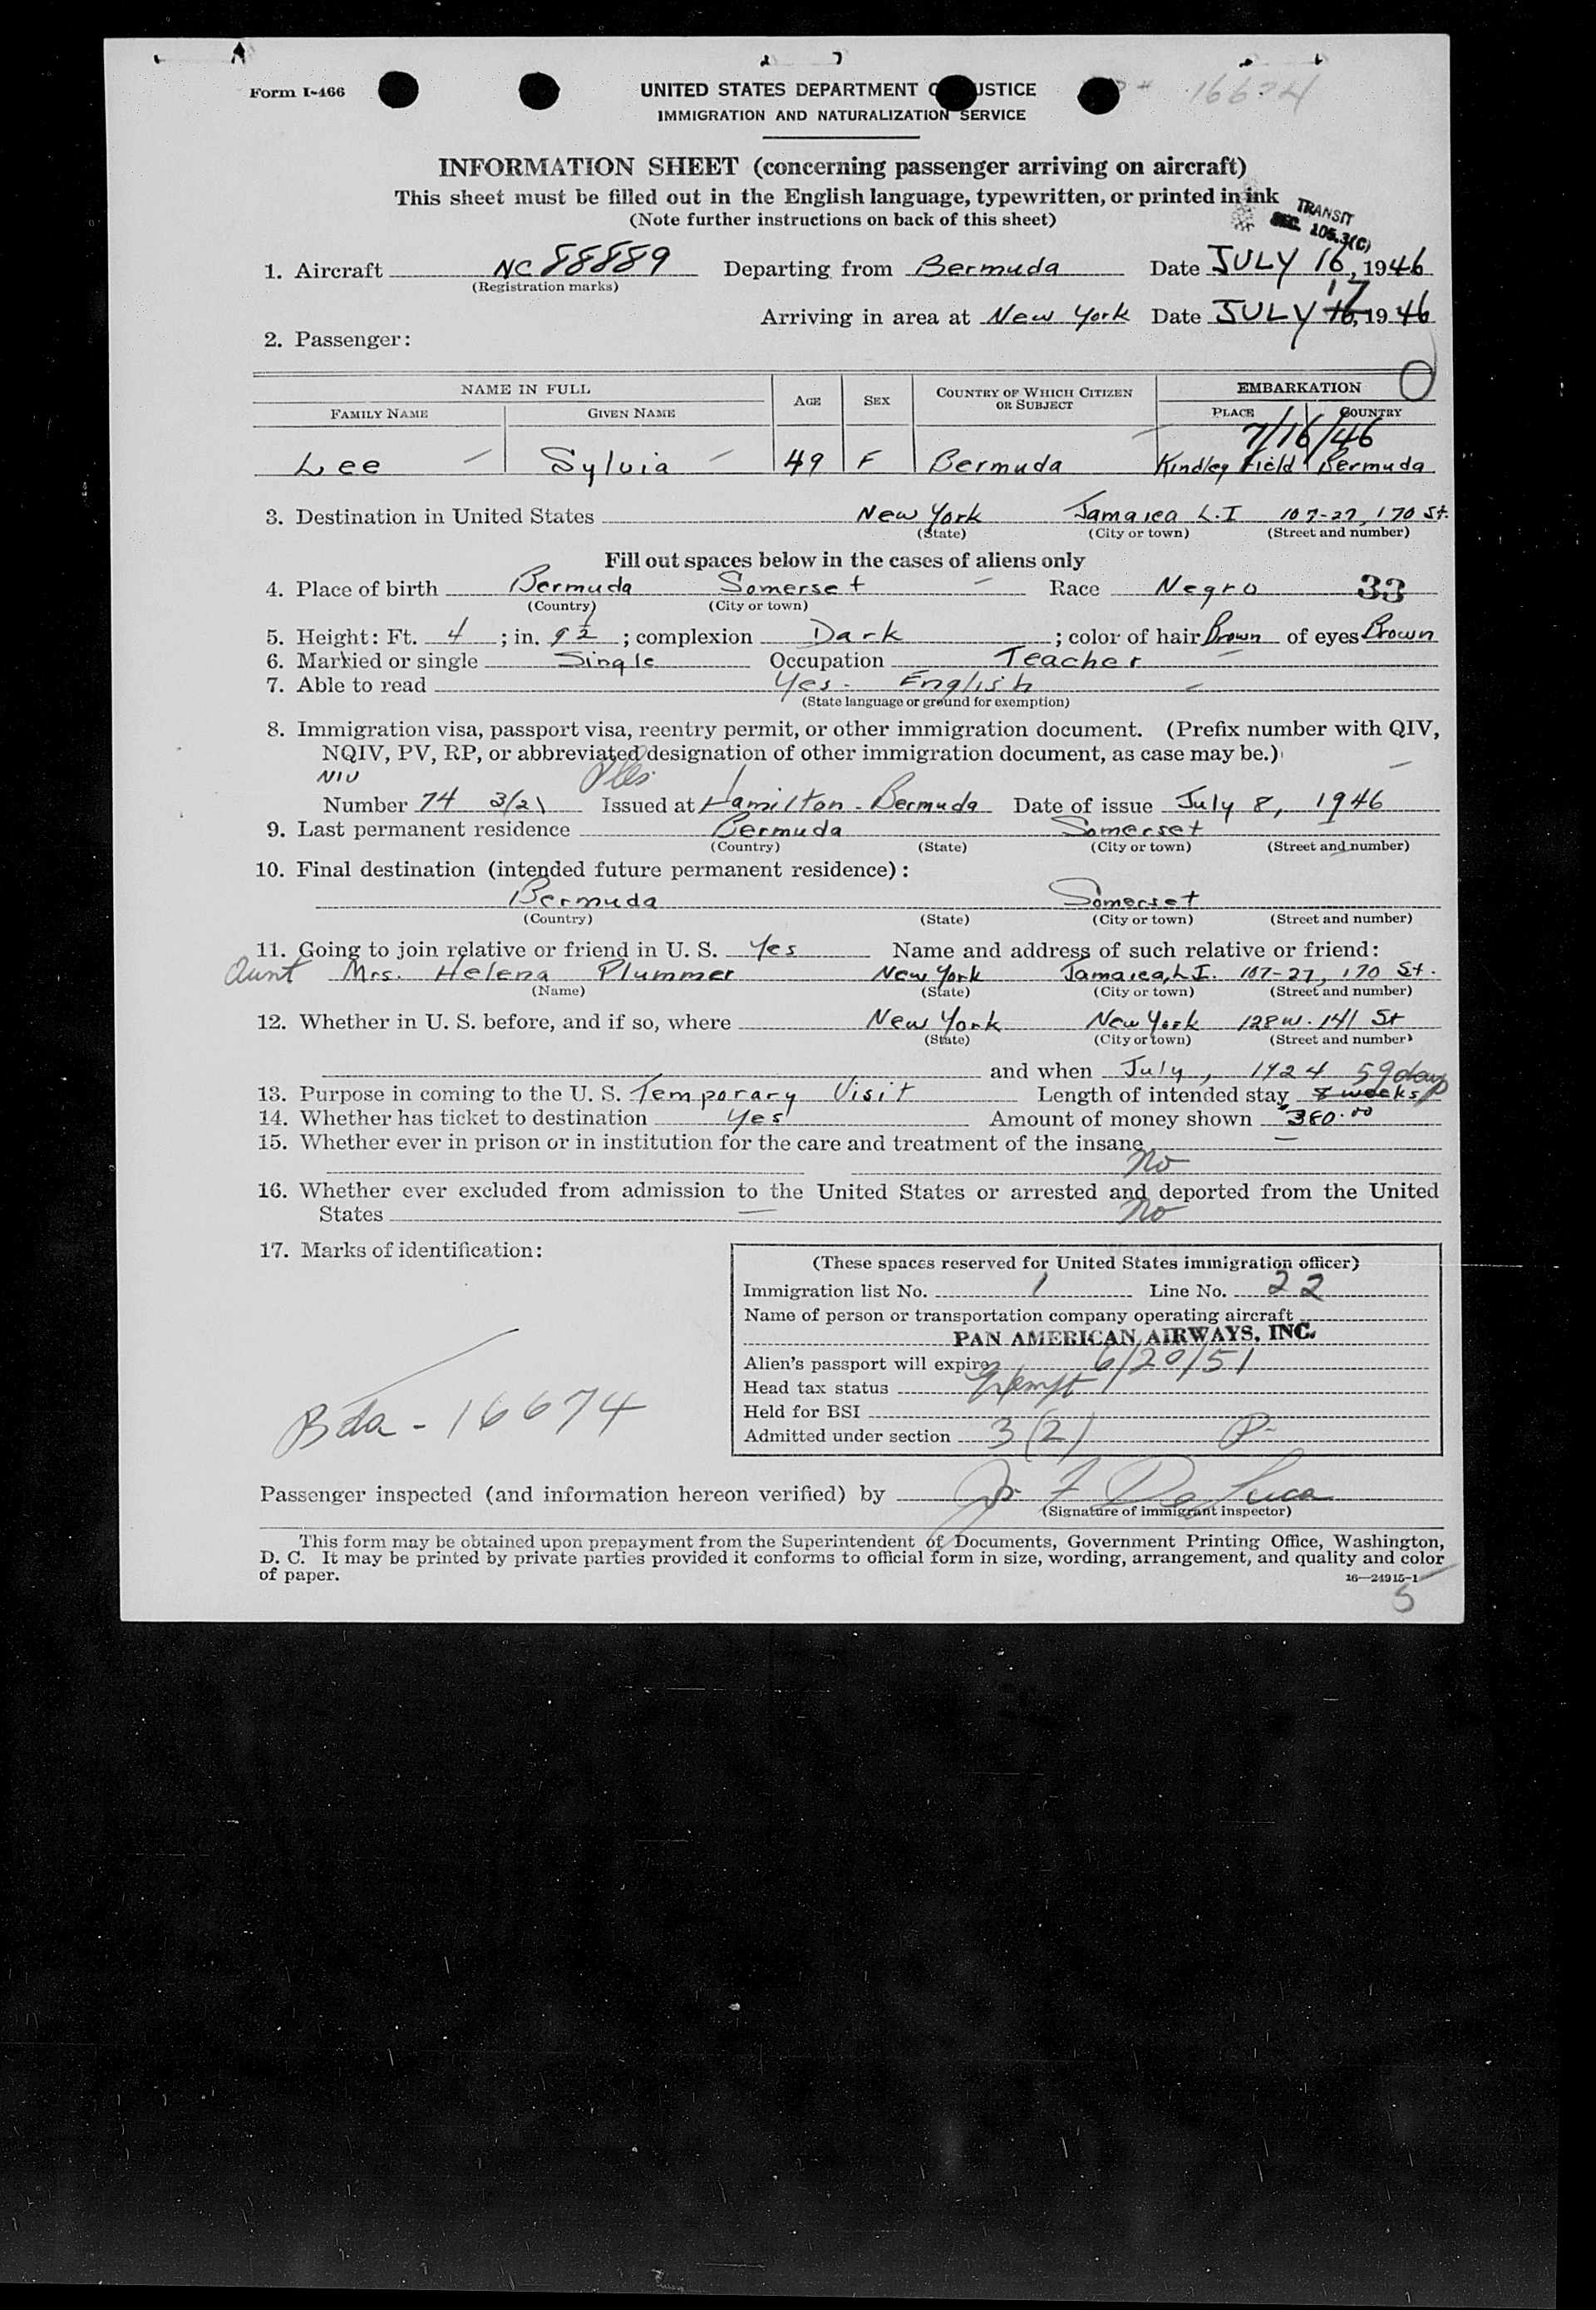 Form I-466
UNITED STATES DEPARTMENT OF JUSTICE
IMMIGRATION AND NATURALIZATION SERVICE
INFORMATION SHEET (concerning passenger arriving on aircraft)
This sheet must be filled out in the English language, typewritten, or printed in ink
(Note further instructions on back of this sheet)
TRANSIT
SEC. 105.3(C)
1. Aircraft NC 88889 Departing from Bermuda Date JULY 16, 1946
(Registration marks)
17
Arriving in area at New York Date JULY 16, 1946
2. Passenger:
NAME IN FULL AGE SEX COUNTRY OF WHICH CITIZEN OR SUBJECT EMBARKATION
FAMILY NAME GIVEN NAME PLACE COUNTRY
7/16/46
Lee Sylvia 49 F Bermuda Kindley Field Bermuda
3. Destination in United States New York Jamaica L.I 107-27, 170 St.
(State) (City or town) (Street and number)
Fill out spaces below in the cases of aliens only
4. Place of birth Bermuda Somerset Race Negro 33
(Country) (City or town)
5. Height: Ft. 4 ; in. 9½ ; complexion Dark ; color of hair Brown of eyes Brown
6. Married or single Single Occupation Teacher
7. Able to read Yes - English
(State language or ground for exemption)
8. Immigration visa, passport visa, reentry permit, or other immigration document. (Prefix number with QIV,
NQIV, PV, RP, or abbreviated designation of other immigration document, as case may be.)
NIV
Number 74 3/2\ Issued at Hamilton - Bermuda Date of issue July 8, 1946
9. Last permanent residence Bermuda Somerset
(Country) (State) (City or town) (Street and number)
10. Final destination (intended future permanent residence):
Bermuda Somerset
(Country) (State) (City or town) (Street and number)
11. Going to join relative or friend in U. S. Yes Name and address of such relative or friend:
Aunt Mrs. Helena Plummer New York Jamaica, L.I. 107-27, 170 St.
(Name) (State) (City or town) (Street and number)
12. Whether in U. S. before, and if so, where New York New York 128 W. 141 St
(State) (City or town) (Street and number)
and when July, 1924 59 days
13. Purpose in coming to the U. S. Temporary Visit Length of intended stay 8 weeks
14. Whether has ticket to destination Yes Amount of money shown $380.00
15. Whether ever in prison or in institution for the care and treatment of the insane
No
16. Whether ever excluded from admission to the United States or arrested and deported from the United
States No
17. Marks of identification:
(These spaces reserved for United States immigration officer)
Immigration list No. 1 Line No. 22
Name of person or transportation company operating aircraft
PAN AMERICAN AIRWAYS, INC.
Alien's passport will expire 6/20/51
Head tax status Exempt
Held for BSI
Admitted under section 3(2) P-
Bda - 16674
Passenger inspected (and information hereon verified) by Jos F De Luca
(Signature of immigrant inspector)
This form may be obtained upon prepayment from the Superintendent of Documents, Government Printing Office, Washington,
D. C. It may be printed by private parties provided it conforms to official form in size, wording, arrangement, and quality and color
of paper.
16—24915-1
5